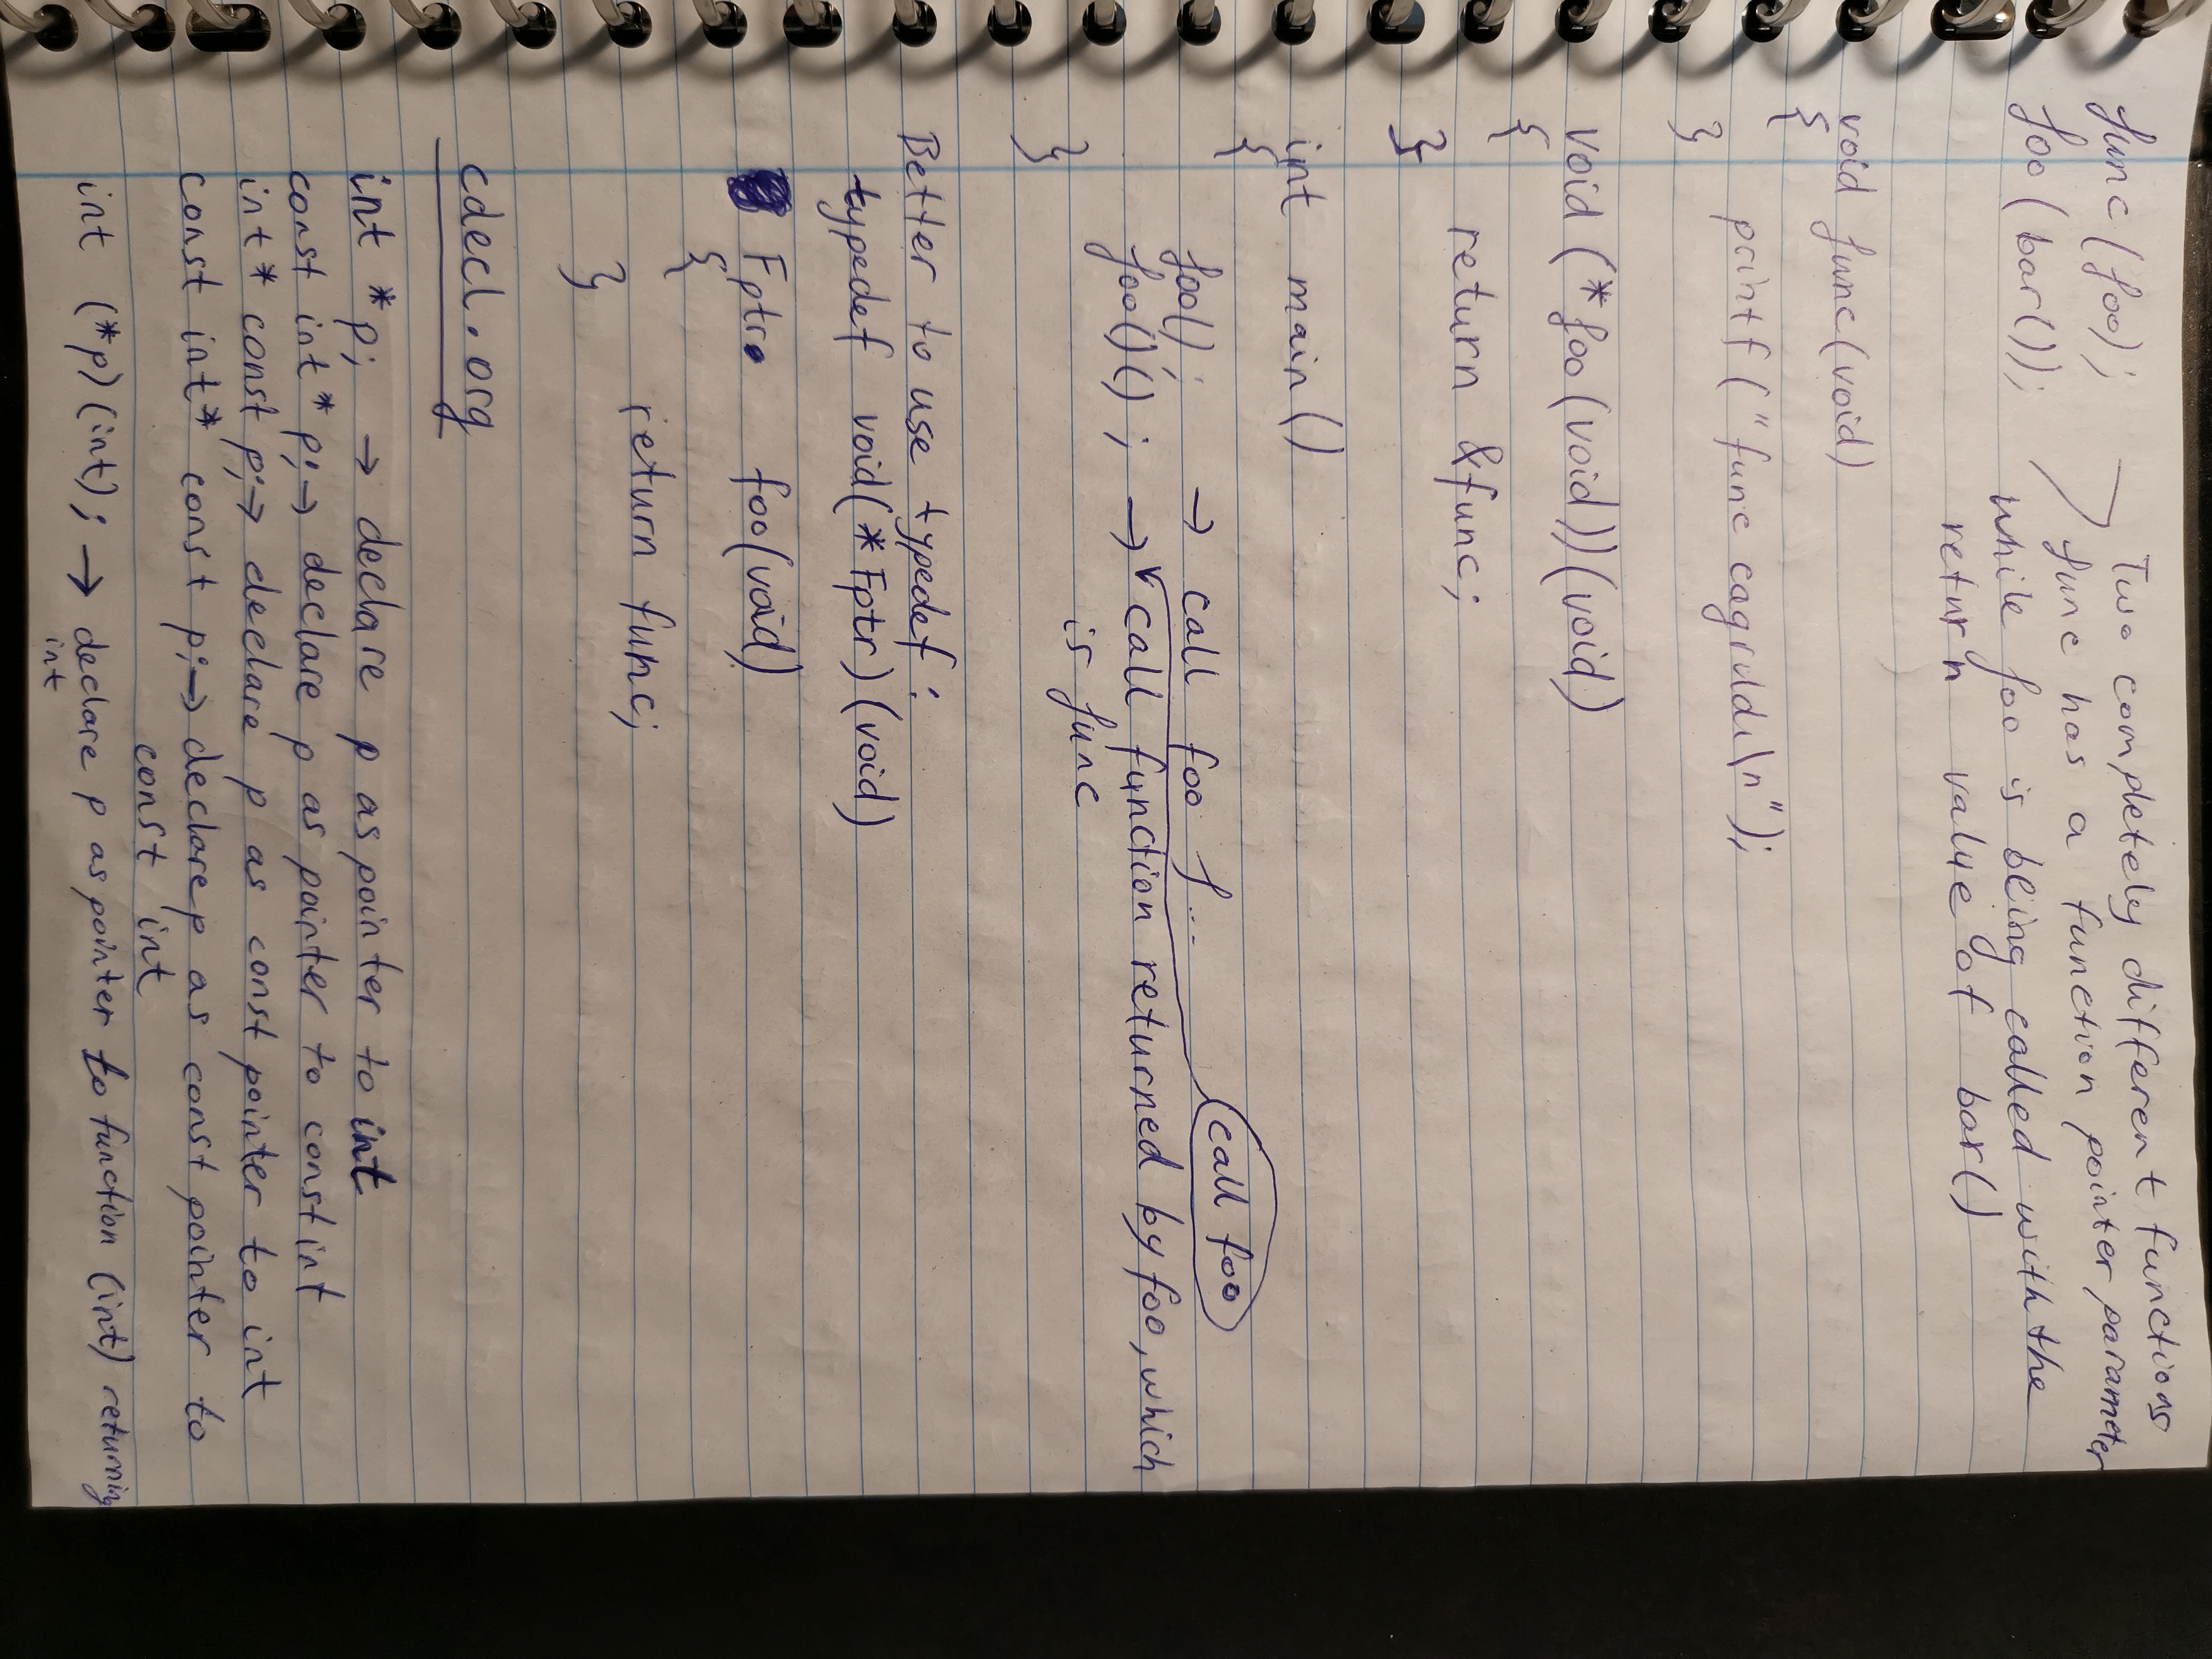 func(foo);
foo(bar());
Two completely different functions
func has a function pointer parameter
while foo is being called with the
return value of bar()
void func(void)
{
printf("func cagrildi\n");
}
void (*foo(void))(void)
{
return &func;
}
int main()
{
call foo
foo(); → call foo f...
foo()(); → call function returned by foo, which
is func
}
Better to use typedef:
typedef void(*Fptr)(void)
Fptr foo(void)
{
return func;
}
cdecl.org
int *p; → declare p as pointer to int
const int* p; → declare p as pointer to const int
int* const p; → declare p as const pointer to int
const int* const p; → declare p as const pointer to
const int
int (*p)(int); → declare p as pointer to function (int) returning
int